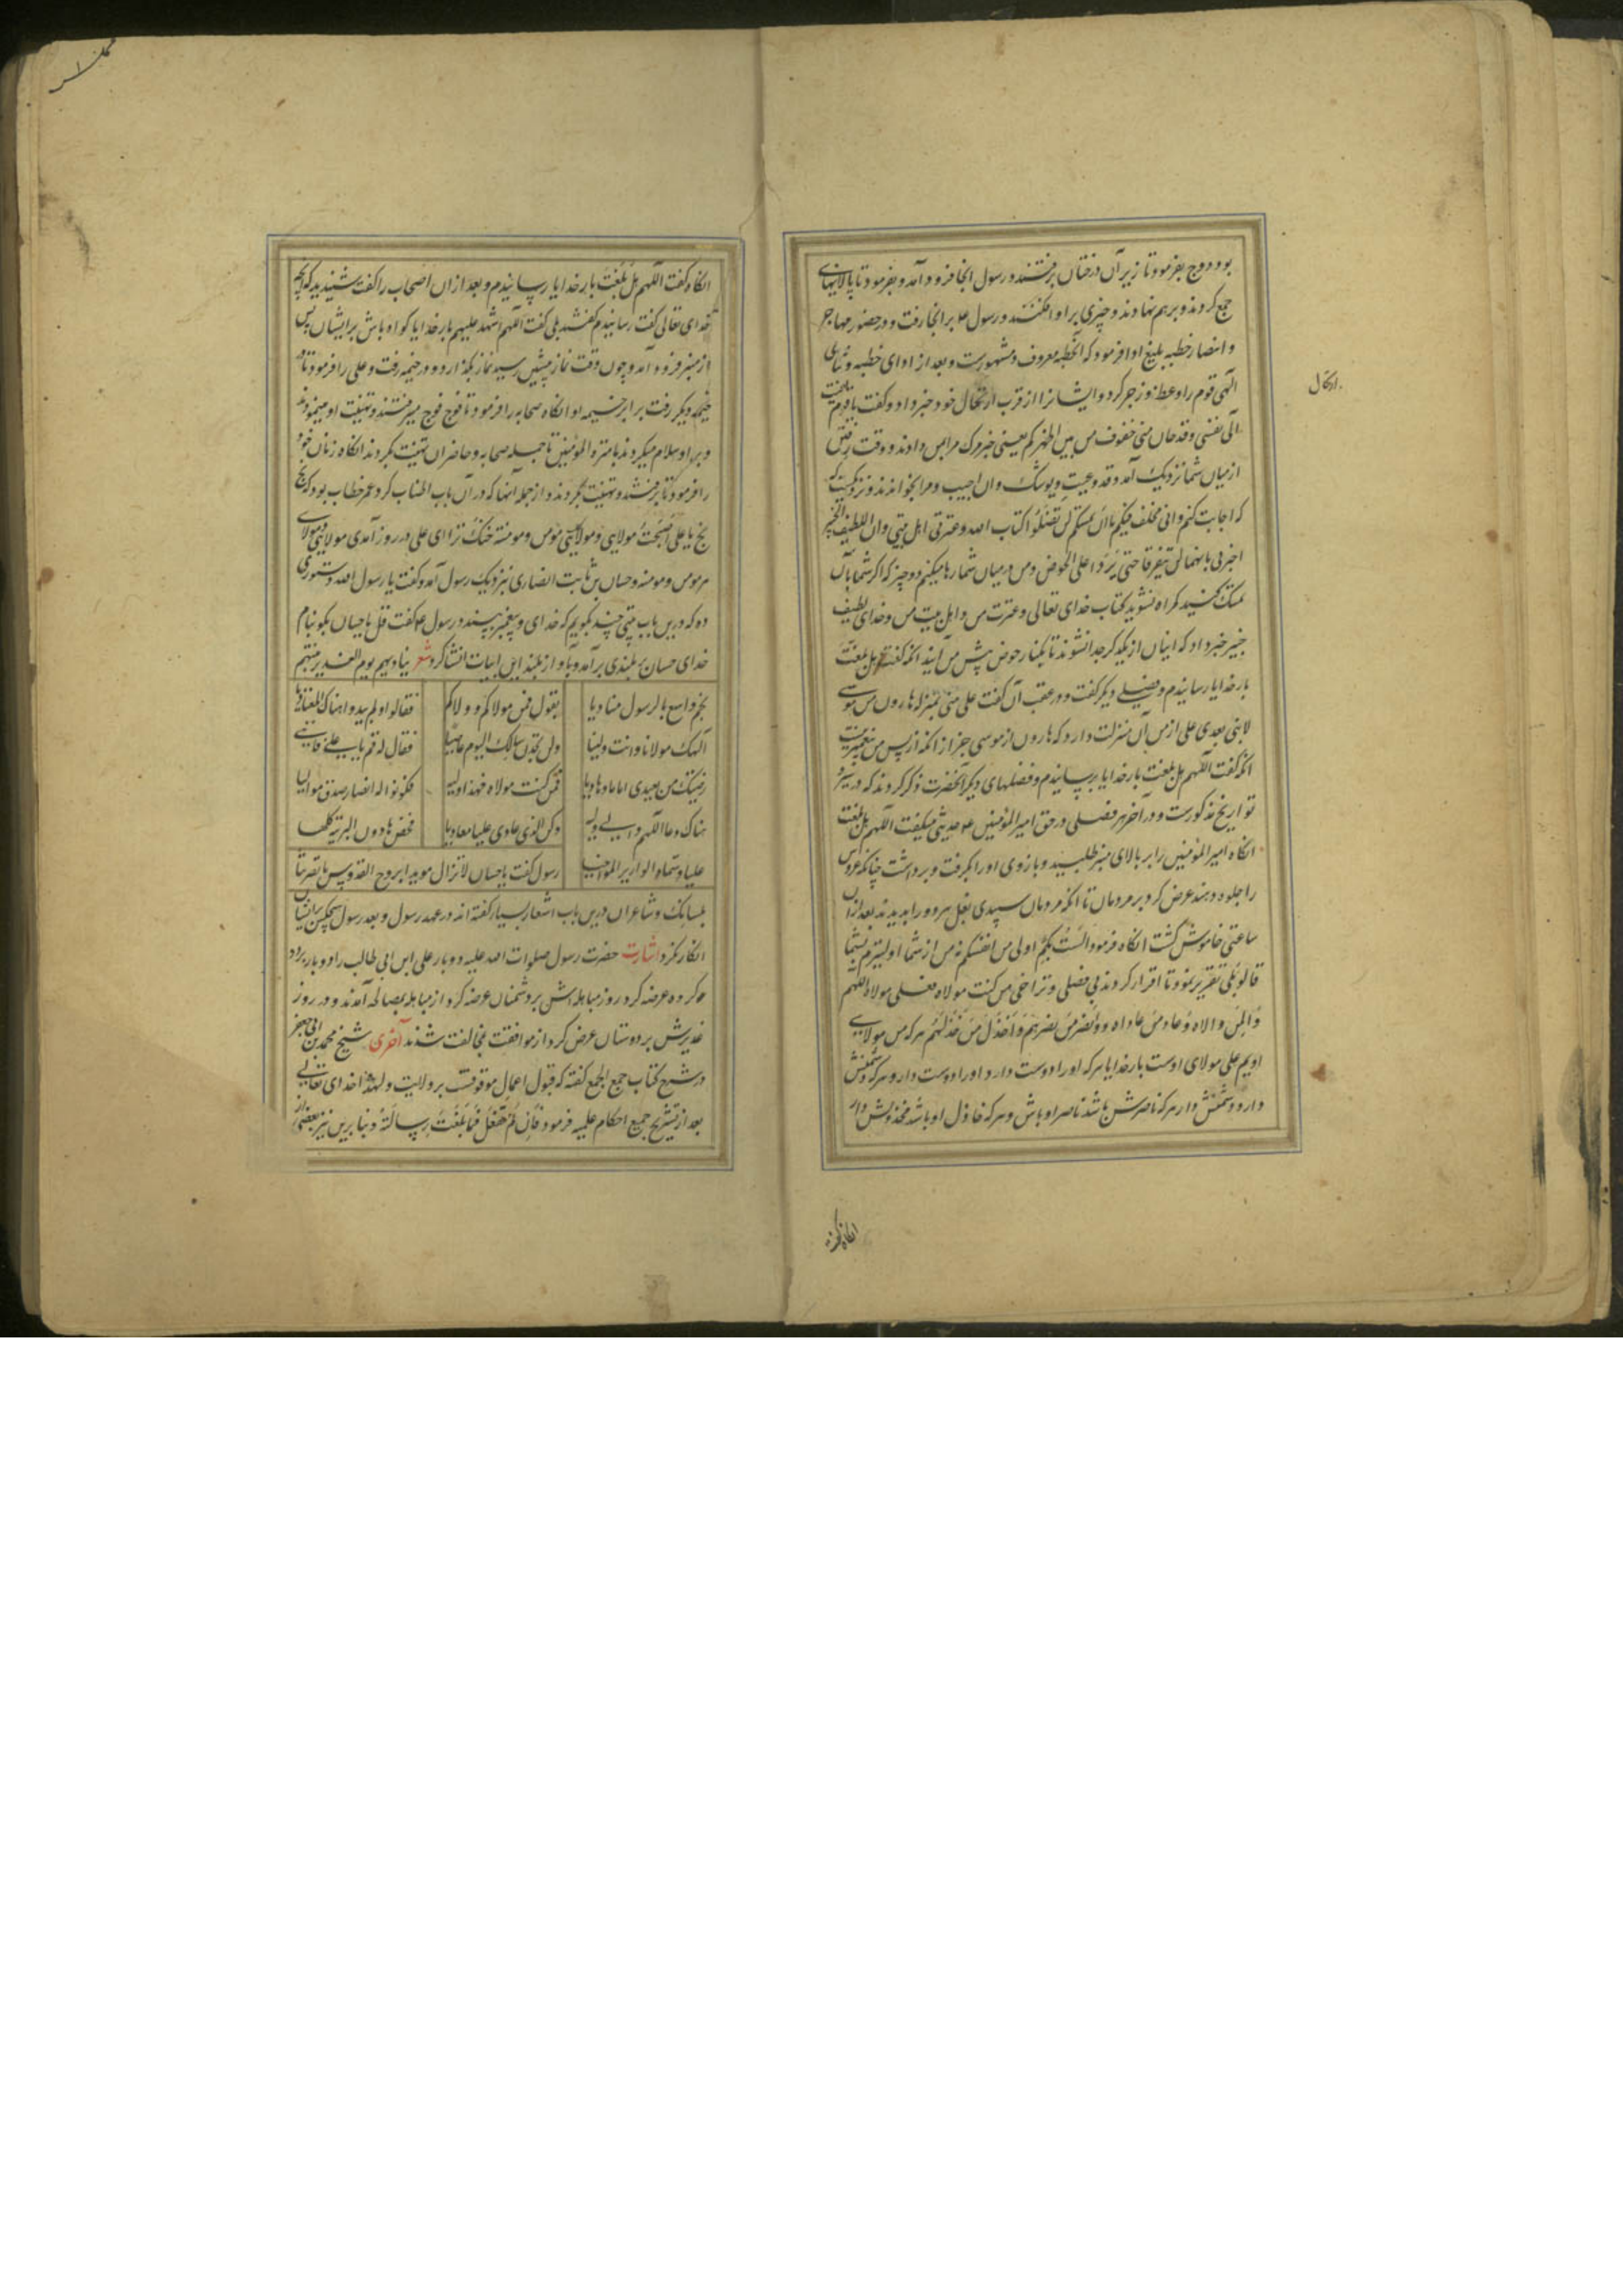 بود دوح بفرمود تا زیر آن درختان برفتند و رسول انجا فرود آمد و بفرمود تا پالانهای
جمع کردند و بر هم نهادند و چیزی بر او افکندند و رسول ع بر انجا رفت و در حضور مهاجر
و انصار خطبه بلیغ ادا فرمود که آنخطبه معروف و مشهورست و بعد از ادای خطبه و ثنای
الهی قوم را وعظ و زجر کرد و ایشانرا از قرب ارتحال خود خبر داد و گفت یا قوم
الی نفسی و قد حان منی خفوف من بین اظهرکم یعنی خبر مرک مرا بمن دادند و وقت رفتن
از میان شما نزدیک آمد و قد دعیت و یوشک و ان اجیب و مرا بخواندند و نزدیکست
که اجابت کنم و انی مخلف فیکم ما ان تمسکتم لن تضلوا کتاب الله و عترتی اهل بیتی و ان اللطیف الخبیر
اخبرنی بانهما لن یتفرقا حتی یردا علی الحوض و من در میان شما رها میکنم دو چیز که اگر شما بآن
تمسک کنید گمراه نشوید کتاب خدای تعالی و عترت من و اهل بیت من و خدای لطیف
خبیر خبر داد که اینان از یکدیکر جدا نشوند تا بکنار حوض پیش من آیند انکه گفت اللهم هل بلغت
بار خدایا رسانیدم و فضیلی دیکر گفت و در عقب آن گفت علی منی بمنزله هارون من موسی
لا نبی بعدی علی از من آن منزلت دارد که هارون از موسی جز از انکه از پس من پیغمبر نیست
انکه گفت اللهم هل بلغت بار خدایا برسانیدم و فضلهای دیکر آنحضرت ذکر کردند که در سیر و
تواریخ مذکورست و در آخر هر فضلی در حق امیر المؤمنین ع حدیثی میکفت اللهم هل بلغت
انکاه امیر المؤمنین را بر بالای منبر طلبید و بازوی او را بگرفت و برداشت چنانکه عروس
را جلوه دهند عرض کرد بر مردمان تا انکه مردمان سپیدی بغل هر دو را بدیدند بعد از ان
ساعتی خاموش گشت انکاه فرمود الست بکم اولی من انفسکم نه من از شما اولیترم بشما
قالوا بلی تقریر نمود تا اقرار کردند بی فصلی و تراخی من کنت مولاه فعلی مولاه اللهم
وال من والاه و عاد من عاداه و انصر من نصرهم و اخذل من خذلهم هر که من مولای
اویم علی مولای اوست بار خدایا هر که او را دوست دارد او را دوست دار و هر که دشمنش
دارد دشمنش دار هر که ناصرش باشد ناصر او باش و هر که خاذل او باشد مخذولش دار
انکاه گفت
انکاه گفت اللهم هل بلغت بار خدایا رسانیدم و بعد از ان اصحاب را گفت شنیدید که انچه
خدای تعالی گفت رسانیدم گفتند بلی گفت اللهم اشهد علیهم بار خدایا گواه باش بر ایشان پس
از منبر فرود آمد و چون وقت نماز پیشین رسید نماز بگذارد و در خیمه رفت و علی را فرمود تا در
خیمه دیکر رفت برابر خیمه او انکاه صحابه را فرمود تا فوج فوج میرفتند و تهنیت او مینمودند
و بر او سلام میکردند بامره المؤمنین تا جمله صحابه و حاضران تهنیت بکردند انکاه زنان خود
را فرمود تا برفتند و تهنیت بکردند و از جمله آنها که در آن باب اطناب کرد عمر خطاب بود که بخ
بخ یا علی اصبحت مولایی و مولا کل مؤمن و مومنة خنک ترا ای علی در روز آمدی مولای من و مولای
هر مومن و مومنه و حسان بن ثابت انصاری بنزدیک رسول آمد و گفت یا رسول الله دستوری
ده که درین باب بیتی چند بگویم که خدای و پیغمبر بپسندد رسول ع گفت قل یا حسان بگو بنام
خدای حسان بر بلندی برآمد و بآواز بلند این ابیات انشا کرد شعر ینادیهم یوم الغدیر نبیهم
بخم و اسمع بالرسول منادیا یقول فمن مولاکم و ولاکم فقالوا و لم یبدوا هناک التعادیا
الهک مولانا و انت ولینا ولن تجدن منا لک الیوم عاصیا فقال له قم یا علی فاننی
رضیتک من بعدی اماما و هادیا فمن کنت مولاه فهذا ولیه فکونوا له انصار صدق موالیا
هناک دعا اللهم وال ولیه و کن للذی عادی علیا معادیا فخص بها دون البریة کلها
علیا و سماه الوزیر المواخیا رسول گفت یا حسان لا تزال مویدا بروح القدس ما نصرتنا
بلسانک و شاعران درین باب اشعار بسیار گفته اند در عهد رسول و بعد رسول هیچکس بر ایشان
انکار نکرد اشارت حضرت رسول صلوات الله علیه دو بار علی ابن ابی طالب را دو بار بر دو
گروه عرضه کرد روز مباهله اش بر دشمنان عرضه کرد از مباهله بمصالحه آمدند و در روز
غدیرش بر دوستان عرض کرد از موافقت بمخالفت شدند آخری شیخ محمد بن ابی جعفر
در شرح کتاب جمع الجمع گفته که قبول اعمال موقوفست بر ولایت و لهذا خدای تعالی
بعد از تشریح جمیع احکام علیه فرمود فان لم تفعل فما بلغت رسالته و بنا برین نیز بعضی از